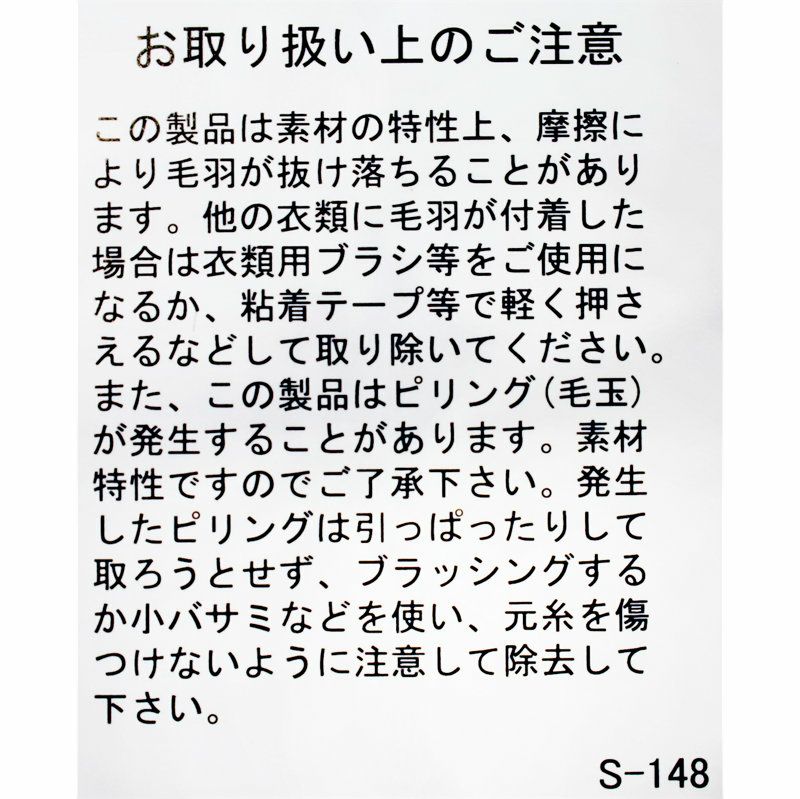 お取り扱い上のご注意
この製品は素材の特性上、摩擦に
より毛羽が抜け落ちることがあり
ます。他の衣類に毛羽が付着した
場合は衣類用ブラシ等をご使用に
なるか、粘着テープ等で軽く押さ
えるなどして取り除いてください。
また、この製品はピリング(毛玉)
が発生することがあります。素材
特性ですのでご了承下さい。発生
したピリングは引っぱったりして
取ろうとせず、ブラッシングする
か小バサミなどを使い、元糸を傷
つけないように注意して除去して
下さい。
S-148